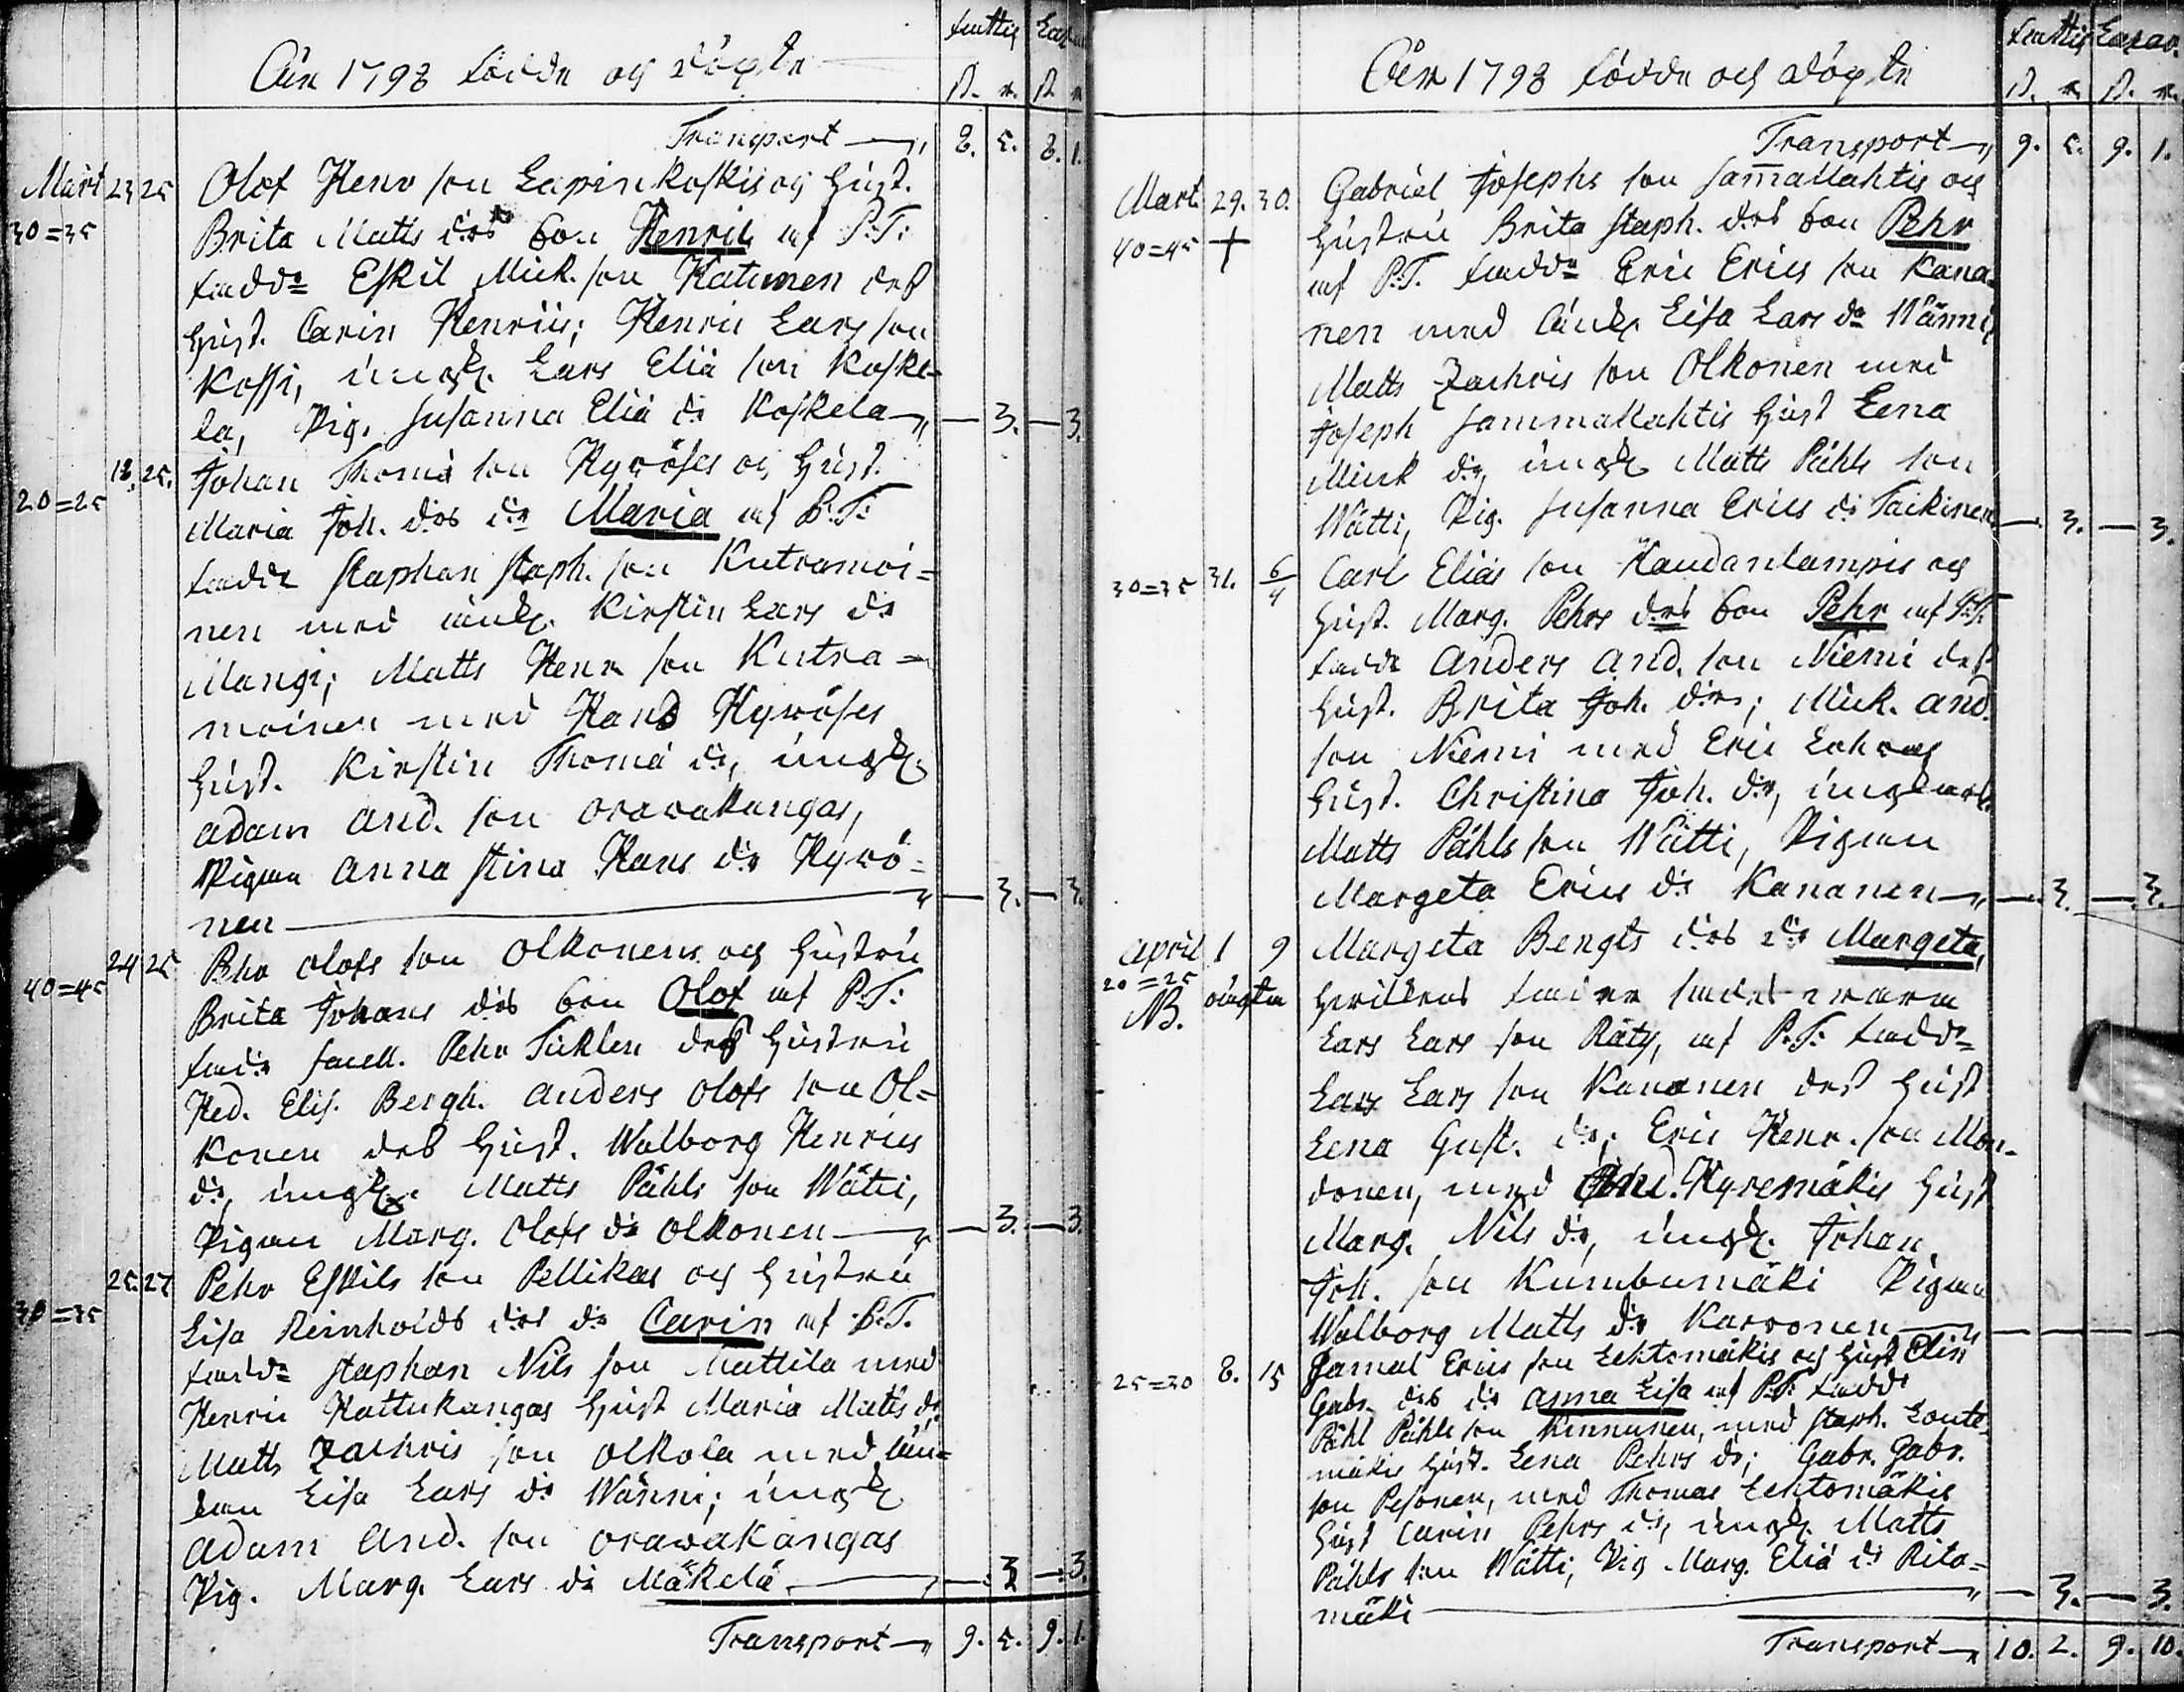 Åhr 1798 födde och döpte
Transport 8. 5. 8. 1.
Mart 23 25 Olof Henr son Lapinkoskis och Hust.
30=35 Brita Matts drs son Henric af P.T.
fadd. Eskil Mick. son Hatunen des
Hust. Carin Henrics; Henric Lars son
Kossi, ungk. Lars Eliæ son Koske-
la, Pig. Susanna Eliæ dr Koskela — 3. — 3.
18. 25. Johan Thomæ son Kyröses och Hust.
20=25 Maria Joh. drs dr Maria af P.T.
fadde Staphan Staph. son Kutramoi=
nen med änk. Kirstin Lars dr
Mangi; Matts Henr son Kutra=
moinen med Hans Hyröses
Hust. Kirstin Thomæ dr, ungk.
Adam And. son Orawakangas,
Pigan Anna Stina Hans dr Hyrö=
nen — 3. — 3.
24 25 Pehr Olofs son Olkonens och Hustru
40=45 Brita Johans drs son Olof af P.T.
Pehr des Hustru
Hed. Elis. Bergh. Anders Olofs son Ol=
konen des Hust. Walborg Henrics
dr, ungk. Matts Påhls son Wätti,
Pigan Marg. Olofs dr Olkonen — 3. — 3.
25. 27 Pehr Eskils son Pellikas och Hustru
30=35 Lisa Reinholds drs dr Carin af P.T.
fadd. Staphan Nils son Mattila med
Henric Hattukangas Hust Maria Matts dr
Matts Zachris son Olkola med än=
kan Lisa Lars dr Wänni; ungk
Adam And. son Orawakangas
Pig. Marg. Lars dr Mäkelä — 3 — 3.
Transport 9. 5. 9. 1.
Åhr 1798 födde och döpte
Transport 9. 5. 9. 1.
Mart. 29. 30. Gabriel Josephs son Sam̅allahtis och
40=45 + Hustru Brita Staph. drs son Pehr
af P.T. fadd. Eric Erics son Kana
nen med änk. Lisa Lars dr Wänni,
Matts Zachris son Olkonen med
Joseph Sammallahtis Hust Lena
Mick dr, ungk Matts Påhls son
Wätti, Pig. Susanna Erics dr Taikinen — 3. — 3.
30=35 31. 6/4 Carl Eliæ son Haudanlampis och
Hust. Marg. Pehrs drs son Pehr af P.T.
fadde Anders And. son Niemi des
Hust. Brita Joh. dr; Mick. And.
son Niemi med Eric
Hust. Christina Joh. dr, ungkarl.
Matts Påhls son Wätti, Pigan
Margeta Erics dr Kananen — 3. — 3.
April 1 9 Margeta Bengts drs dr Margeta,
20=25 oägta
NB.
Lars Lars son Räty, af P.T. fadd.
Lars Lars son Kananen des Hust
Lena Gust. dr; Eric Henr. son Mon-
donen, med Kyremäkis Hust
Marg. Nils dr, ungk. Johan
Joh. son Kumbumäki Pigan
Walborg Matts dr Karvonen — — — —
25=30 8. 15 Samal Erics son Lehtomäkis och Hust Elin
Gabr. drs dr Anna Lisa af P.T. fadde
Påhl Påhls son Kinnunen, med Staph. Lonte
mäkis Hust. Lena Pehrs dr; Gabr. Gabr.
son Pesonen, med Thomas Lehtomäkis
Hust Carin Pehrs dr, ungk. Matts
Påhls son Wätti, Pig Marg. Eliæ dr Rita=
mäki — 3. — 3.
Transport 10. 2. 9. 10.